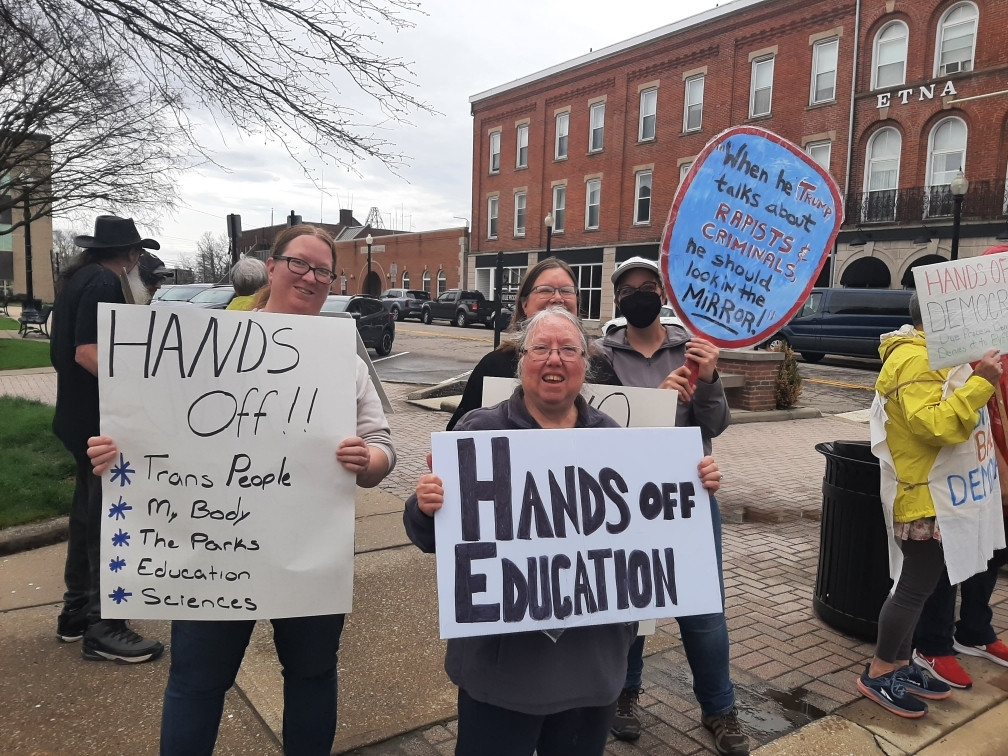 ETNA
HANDS
Off!!
* Trans People
* My Body
* The Parks
* Education
* Sciences
HANDS OFF
EDUCATION
"When he TRUMP
talks about
RAPISTS &
CRIMINALS,
he should
look in the
MiRROR!"
HANDS OF
DEMOC
BA
DEMO